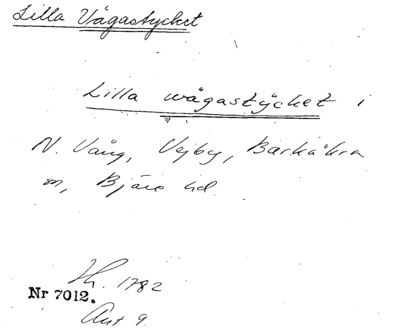 Lilla Vågastycket
Lilla wägastÿcket i
N. Vång, Vejby, Barkåkra
m, Bjäre hd.
Nr 7012.
1782
Akt 9.